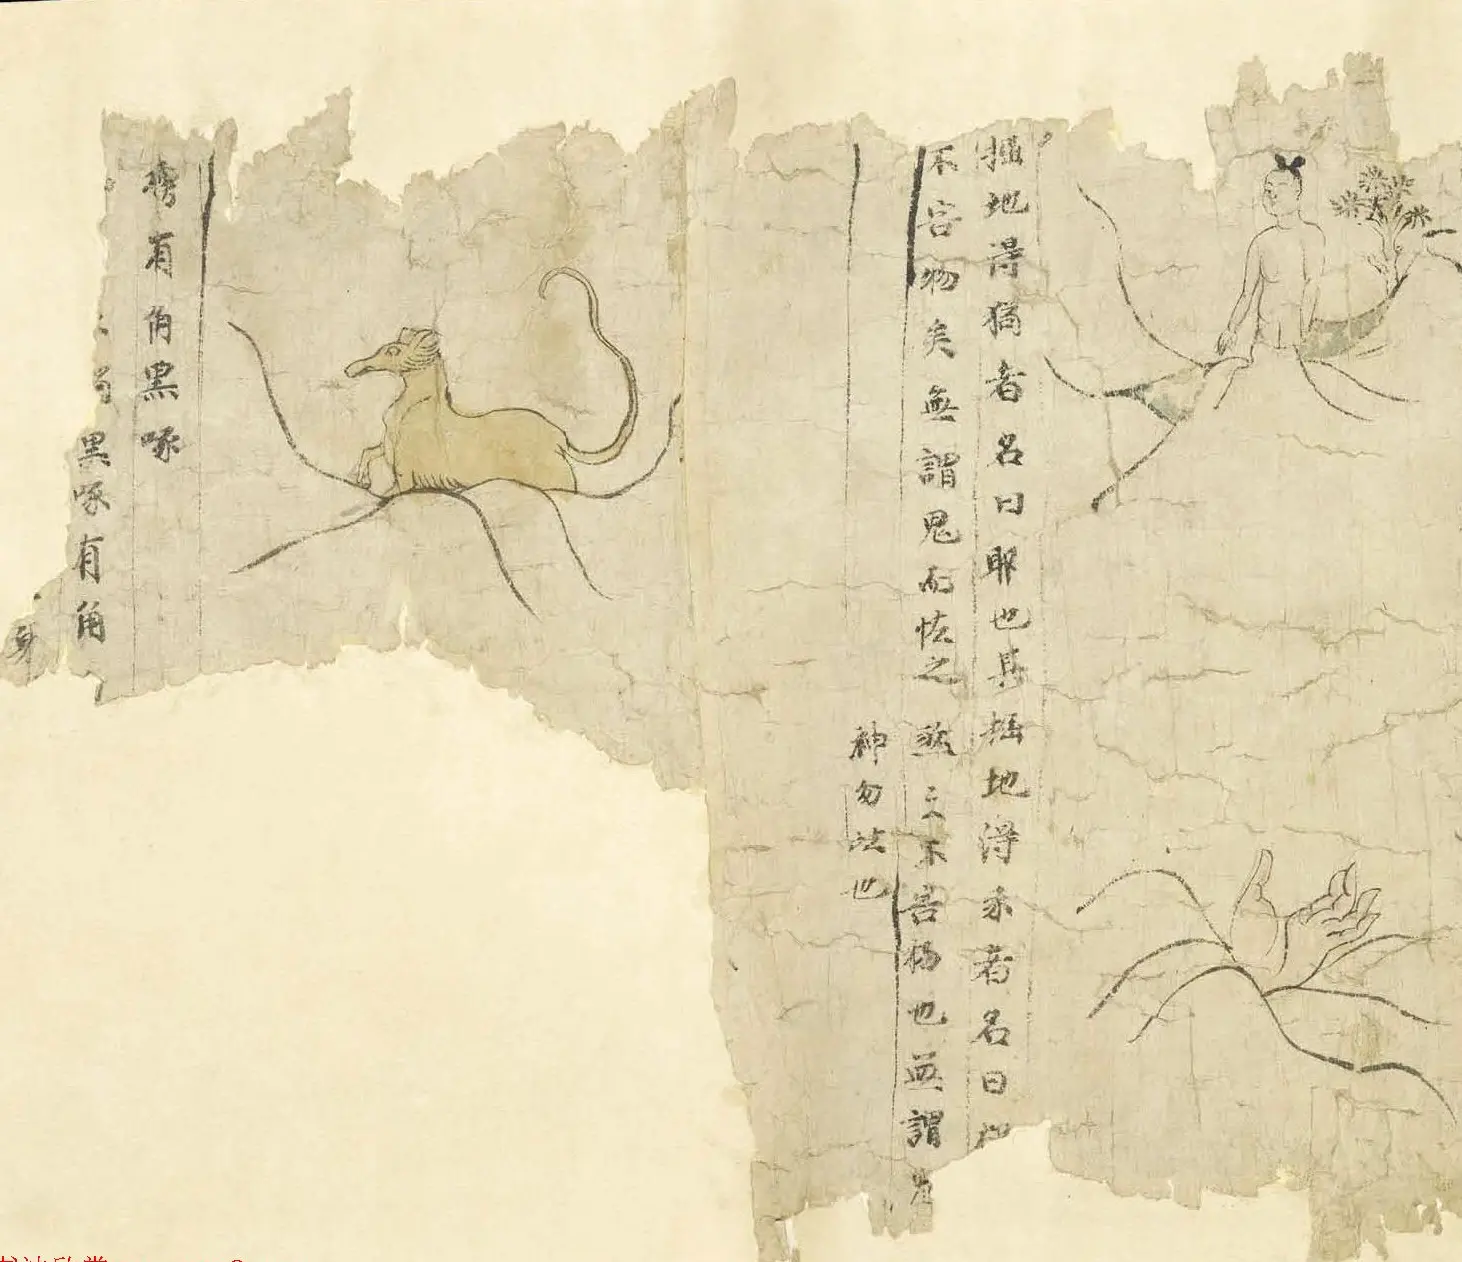 掘地得猪者名曰耶也其掘地得豕者名曰
不害物矣無謂鬼而怯之然三不害物也無謂
神勿法也
有角黑啄
黑啄有角
身